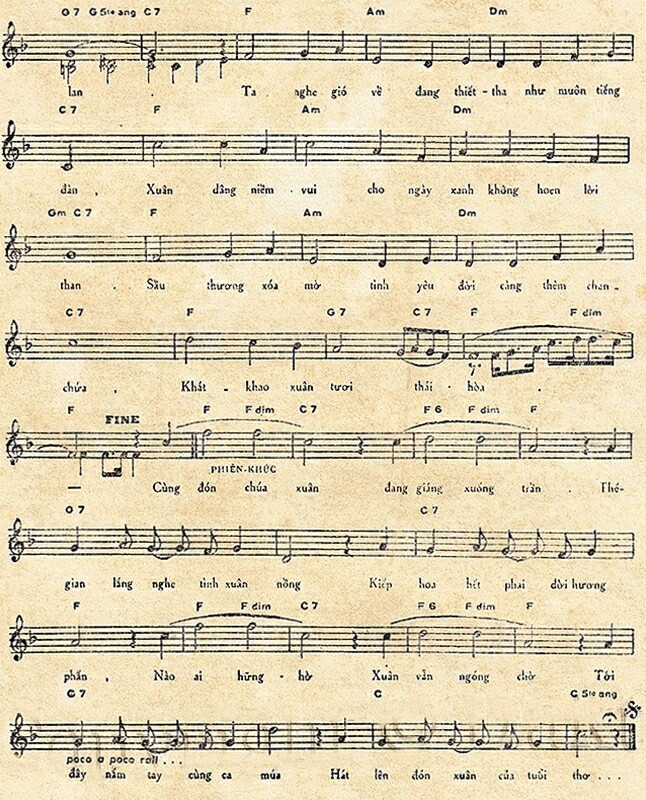 G7 G5te ang C7 F Am Dm
lan . Ta nghe gió về đang thiết - tha như muôn tiếng
C7 F Am Dm
đàn , Xuân dâng niềm - vui cho ngày xanh không hoen lời
Gm C7 F Am Dm
than . Sầu thương xóa mờ tình yêu đời càng thêm chan -
C7 F G7 C7 F F dim
chứa , Khát - khao xuân tươi thái - hòa .
F FINE F F dim C7 F6 F dim F
PHIÊN-KHÚC
— Cùng đón chúa xuân đang giáng xuống trần . Thế-
G7 C7
gian lắng nghe tình xuân nồng Kiếp hoa hết phai đời hương
F F F dim C7 F6 F dim F
phấn , Nào ai hững - hờ Xuân vẫn ngóng chờ Tới
G7 C G5te ang
poco a poco rall ...
đây nắm tay cùng ca múa Hát lên đón xuân của tuổi thơ ...